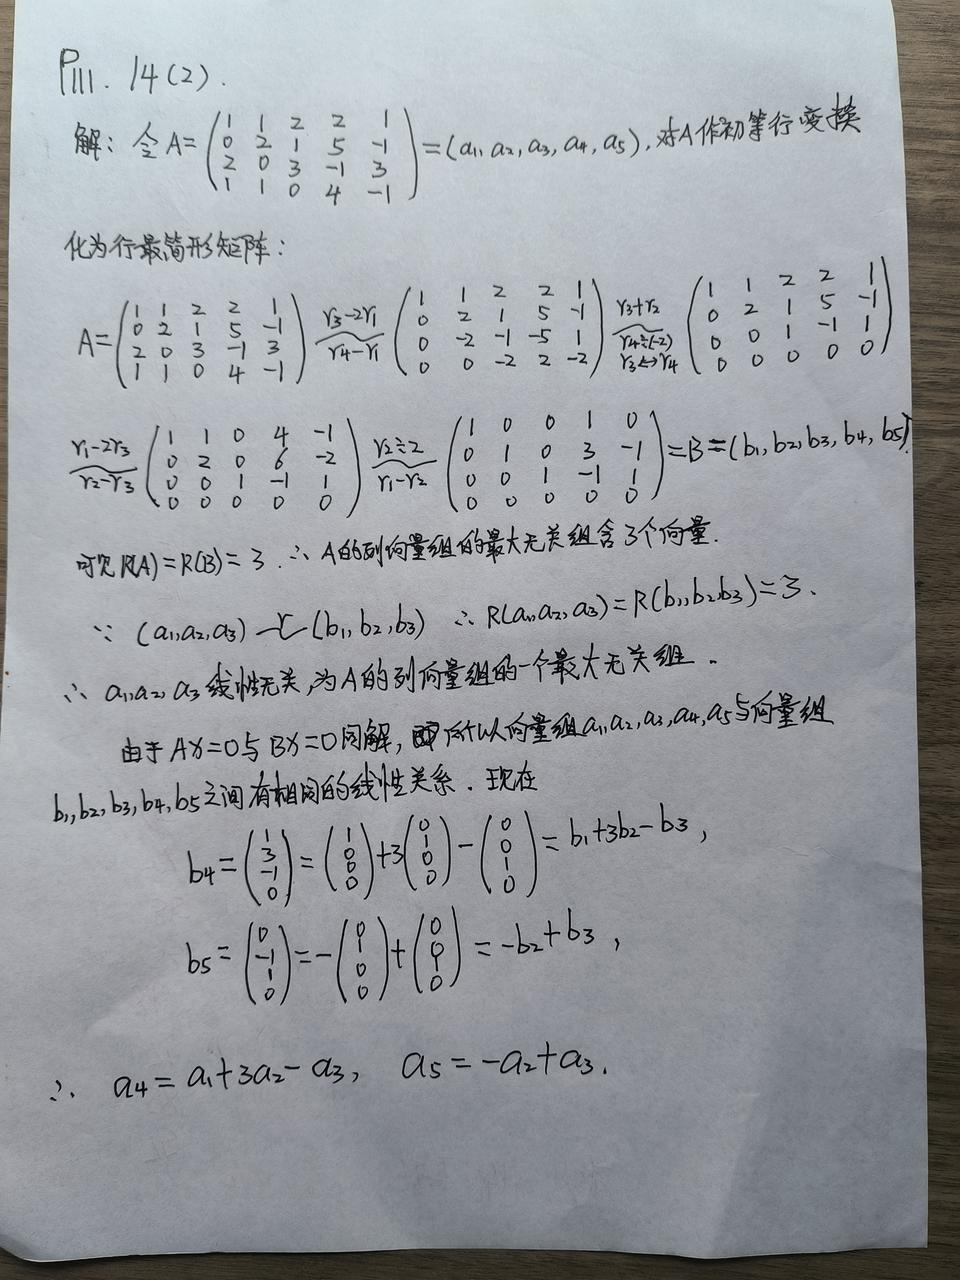 P111. 14(2).
解：令A=(1 1 2 2 1; 0 2 1 5 -1; 2 0 3 -1 3; 1 1 0 4 -1)=(a1, a2, a3, a4, a5), 对A作初等行变换
化为行最简形矩阵：
A=(1 1 2 2 1; 0 2 1 5 -1; 2 0 3 -1 3; 1 1 0 4 -1) r3-2r1 r4-r1 (1 1 2 2 1; 0 2 1 5 -1; 0 -2 -1 -5 1; 0 0 -2 2 -2) r3+r2 r4÷(-2) r3↔r4 (1 1 2 2 1; 0 2 1 5 -1; 0 0 1 -1 1; 0 0 0 0 0)
r1-2r3 r2-r3 (1 1 0 4 -1; 0 2 0 6 -2; 0 0 1 -1 1; 0 0 0 0 0) r2÷2 r1-r2 (1 0 0 1 0; 0 1 0 3 -1; 0 0 1 -1 1; 0 0 0 0 0)=B=(b1, b2, b3, b4, b5).
可见R(A)=R(B)=3. ∴A的列向量组的最大无关组含3个向量.
∵ (a1,a2,a3) ~r (b1,b2,b3) ∴R(a1,a2,a3)=R(b1,b2,b3)=3.
∴ a1,a2,a3线性无关,为A的列向量组的一个最大无关组.
由于AX=0与BX=0同解, 所以向量组a1,a2,a3,a4,a5与向量组
b1,b2,b3,b4,b5之间有相同的线性关系. 现在
b4=(1 3 -1 0)=(1 0 0 0)+3(0 1 0 0)-(0 0 1 0)=b1+3b2-b3,
b5=(0 -1 1 0)=-(0 1 0 0)+(0 0 1 0)=-b2+b3,
∴ a4=a1+3a2-a3, a5=-a2+a3.